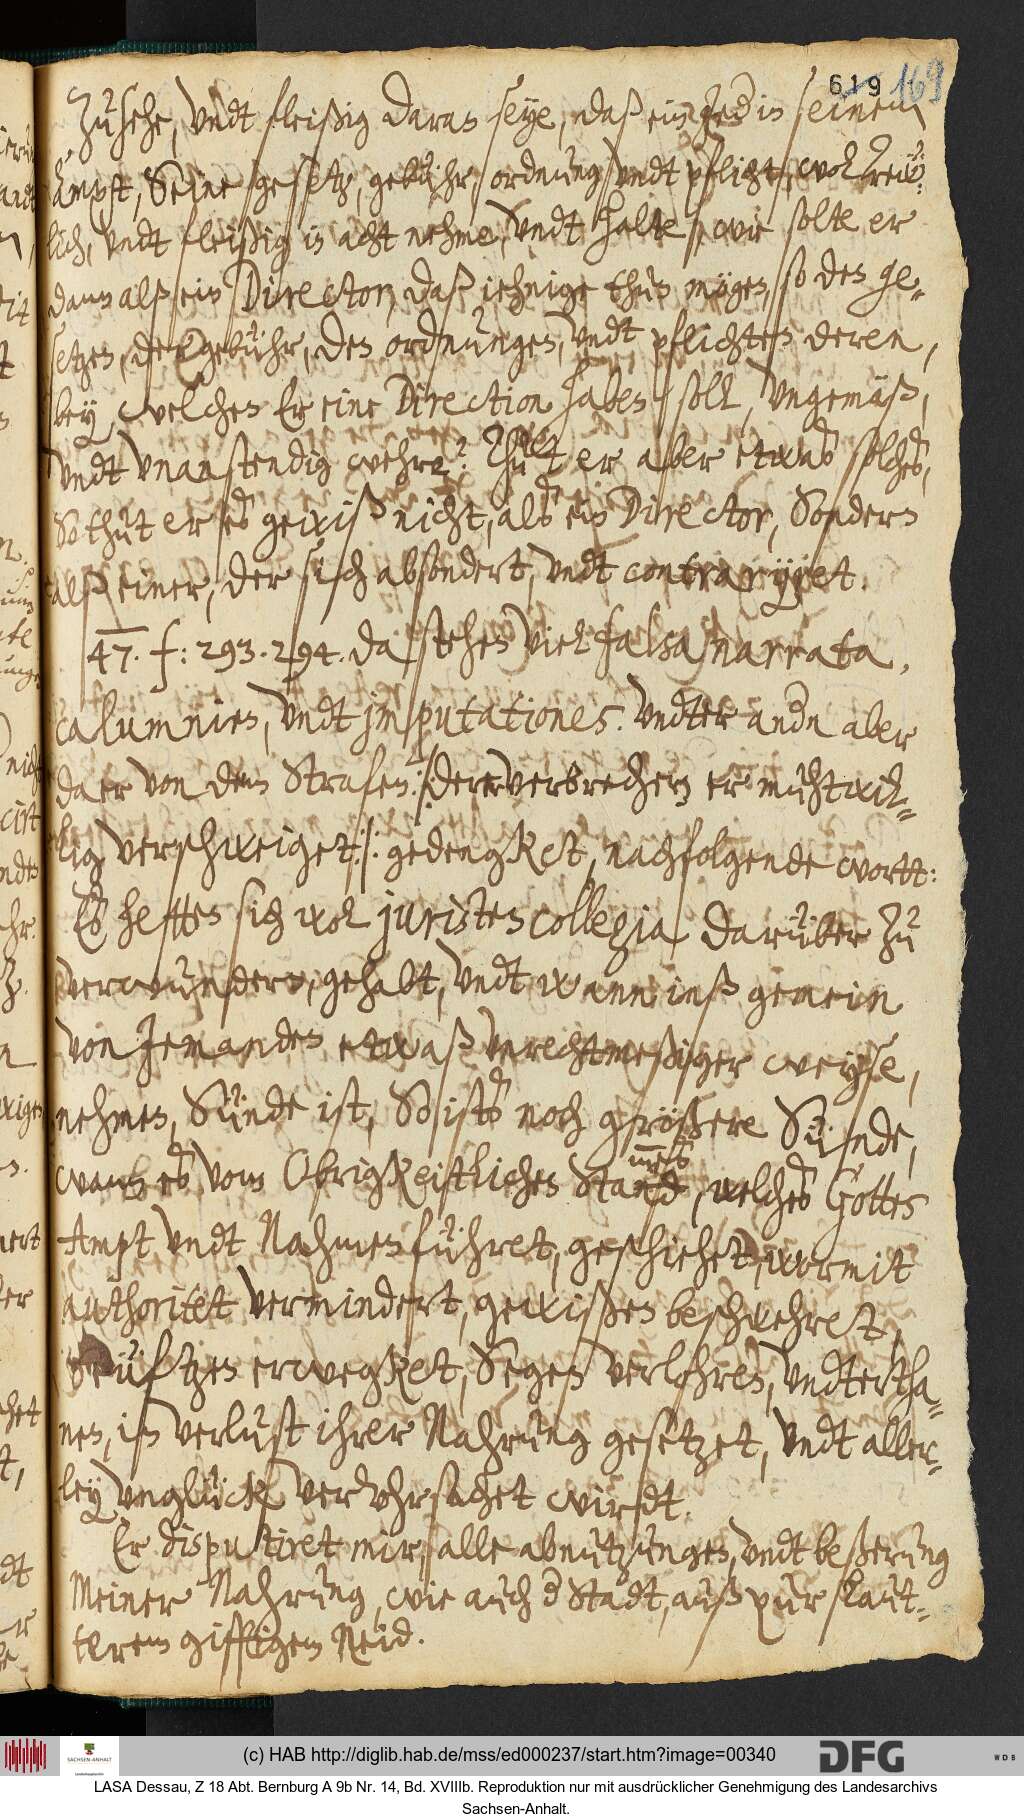 619 169
Zusehe, undt fleißig daran seye, daß ein Jed in seinem
Ampt, Seine gesetz, gebühr, ordnung undt pflicht, wol treu¬
lich, undt fleißig in acht nehme, undt halte, wie solte er
dann alß ein Director, daß iehnige thun mögen, so den ge¬
setzen, der gebühr, den ordnungen, undt pflichten deren,
bey welchen Er eine Direction haben soll, ungemäß,
undt unanstendig wehre? Thut er aber etwaß solches,
So thut er es gewiß nicht, alß ein Director, Sondern
alß einer, der sich absondert, undt contrariiret.
47. f: 293. 294. da stehen viel falsa narrata,
calumnien, undt imputationes. Undter andn aber
da er von den Strafen :/: derer verbrechen er muhtwil¬
lig verschweiget :/: gedengket, nachfolgende wortt:
Es hetten sich wol juristen collegia darüber zu
verwundern, gehabt, undt wann inß gemein
von Jemanden etwaß unrechtmeßiger weyse,
nehmen, Sünde ist, So ists noch größere Sünde,
wann es vom Obrigkeitlichen Stand, welches Gottes
Ampt undt Nahmen führet, geschiehet, wormit
authoritet vermindert, gewißen beschwehret,
seüftzen erwegket, Segen verlohren, undtertha¬
nen, in verlust ihrer Nahrung gesetzet, undt aller¬
ley unglück veruhrsachet wirdt.
Er disputiret mir, alle abnutzungen, undt beßerung
Meiner Nahrung, wie auch d Stadt, auß pur laut¬
terem gifftigem Neid.
(c) HAB http://diglib.hab.de/mss/ed000237/start.htm?image=00340
SACHSEN-ANHALT
DFG
WDB
LASA Dessau, Z 18 Abt. Bernburg A 9b Nr. 14, Bd. XVIIIb. Reproduktion nur mit ausdrücklicher Genehmigung des Landesarchivs
Sachsen-Anhalt.